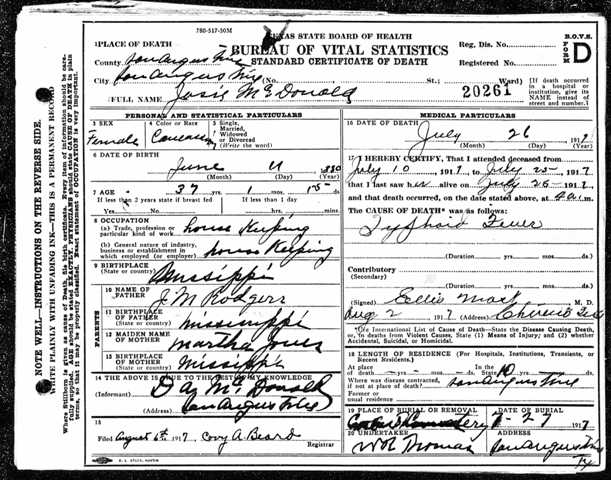 780-517-50M
TEXAS STATE BOARD OF HEALTH
BUREAU OF VITAL STATISTICS
STANDARD CERTIFICATE OF DEATH
B.O.V.S.
FORM D
Reg. Dis. No.
Registered No.
1 PLACE OF DEATH
County San Augustine
City San Augustine (No. St.; Ward)
[If death occurred in a hospital or institution, give its NAME instead of street and number.]
20261
2 FULL NAME Josie McDonald
PERSONAL AND STATISTICAL PARTICULARS
3 SEX
Female
4 Color or Race
Caucasian
5 Single, Married, Widowed or Divorced (Write the word)
6 DATE OF BIRTH
June 11 1880
(Month) (Day) (Year)
7 AGE 37 1 15 DS.
If less than 2 years state if breast fed
If less than 1 day
8 OCCUPATION
(a) Trade, profession or particular kind of work House Keeping
(b) General nature of industry, business or establishment in which employed or (employer) House Keeping
9 BIRTHPLACE
(State or country) Missippi
PARENTS
10 NAME OF FATHER J M Rodgers
11 BIRTHPLACE OF FATHER
(State or country) Mississippi
12 MAIDEN NAME OF MOTHER Martha
13 BIRTHPLACE OF MOTHER
(State or country) Missippi
14 THE ABOVE IS TRUE TO THE BEST OF MY KNOWLEDGE
(Informant) McDonald
(Address) San Augustine
15
Filed August 6th 1917 Covy A. Beard
Registrar
MEDICAL PARTICULARS
16 DATE OF DEATH
July 26 1917
(Month) (Day) (Year)
17 I HEREBY CERTIFY, That I attended deceased from
July 10 1917 to July 25 1917
that I last saw her alive on July 25 1917
and that death occurred, on the date stated above, at m.
The CAUSE OF DEATH* was as follows:
Typhoid Fever
(Duration) yrs. mos. ds.
Contributory
(Secondary)
(Duration) yrs. mos. ds.
(Signed)
Aug 2 1917 (Address)
*Use International List of Cause of Death—State the Disease Causing Death, or in deaths from Violent Causes, State (1) Means of Injury; and (2) whether Accidental, Suicidal, or Homicidal.
18 LENGTH OF RESIDENCE (For Hospitals, Institutions, Transients, or Recent Residents.)
At place of death yrs. mos. ds. State 10 yrs. mos. ds.
Where was disease contracted, if not at place of death? San Augustine
Former or usual residence
19 PLACE OF BURIAL OR REMOVAL
DATE OF BURIAL
7-27 1917
20 UNDERTAKER
Thomas
ADDRESS
San Augustine
Tx
NOTE WELL—INSTRUCTIONS ON THE REVERSE SIDE.
WRITE PLAINLY WITH UNFADING INK—THIS IS A PERMANENT RECORD